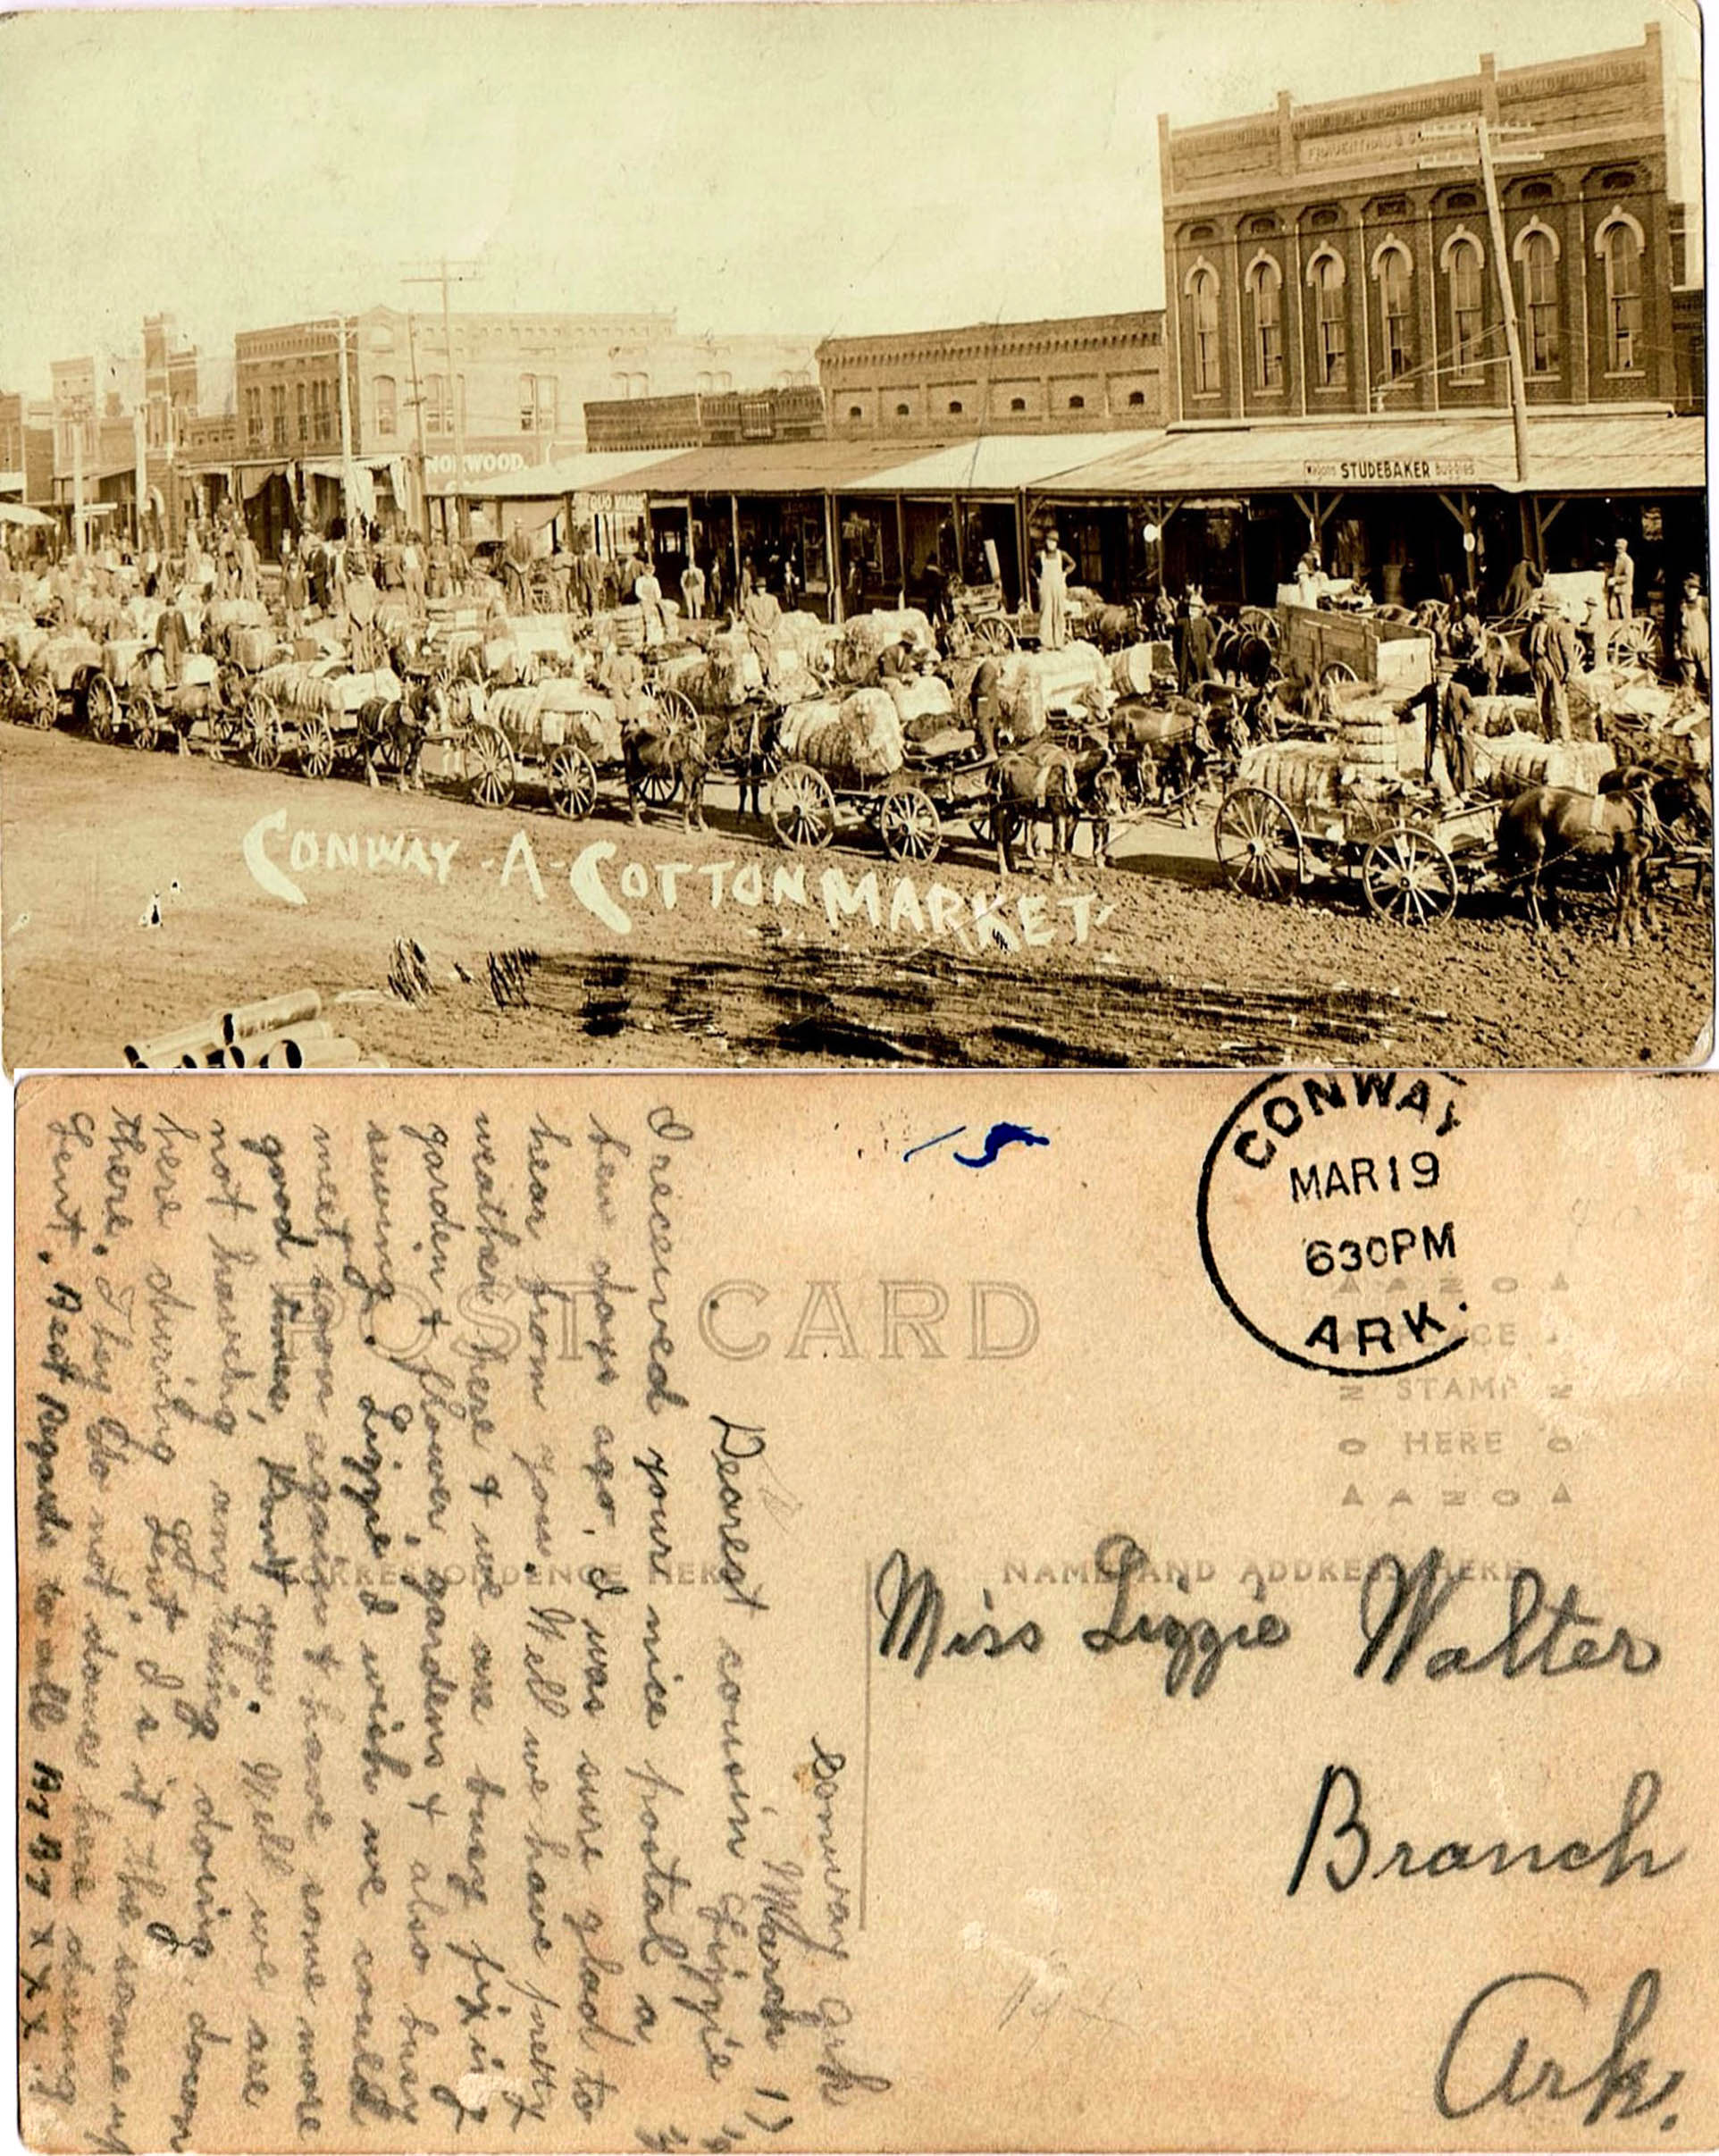 FRAUENTHAL & SC
NORWOOD.
Wagons STUDEBAKER buggies
CONWAY -A- COTTON MARKET
CONWAY
MAR 19
630PM
ARK.
POST CARD
CORRESPONDENCE HERE
NAME AND ADDRESS HERE
AZO
PLACE
STAMP
HERE
AZO
Miss Lizzie Walter
Branch
Ark.
Conway Ark
March 1
Dearest cousin Lizzie
I received your nice postal a
few days ago, I was sure glad to
hear from you. Well we have pretty
weather here & we are busy fixing
garden & flower gardens & also busy
sewing. Lizzie I wish we could
meet soon again & have some more
good times, Dont you. Well we are
not having any thing doing down
here during Lent. Is it the same up
there. They do not dance here during
Lent. Best Regards to all By By x x x